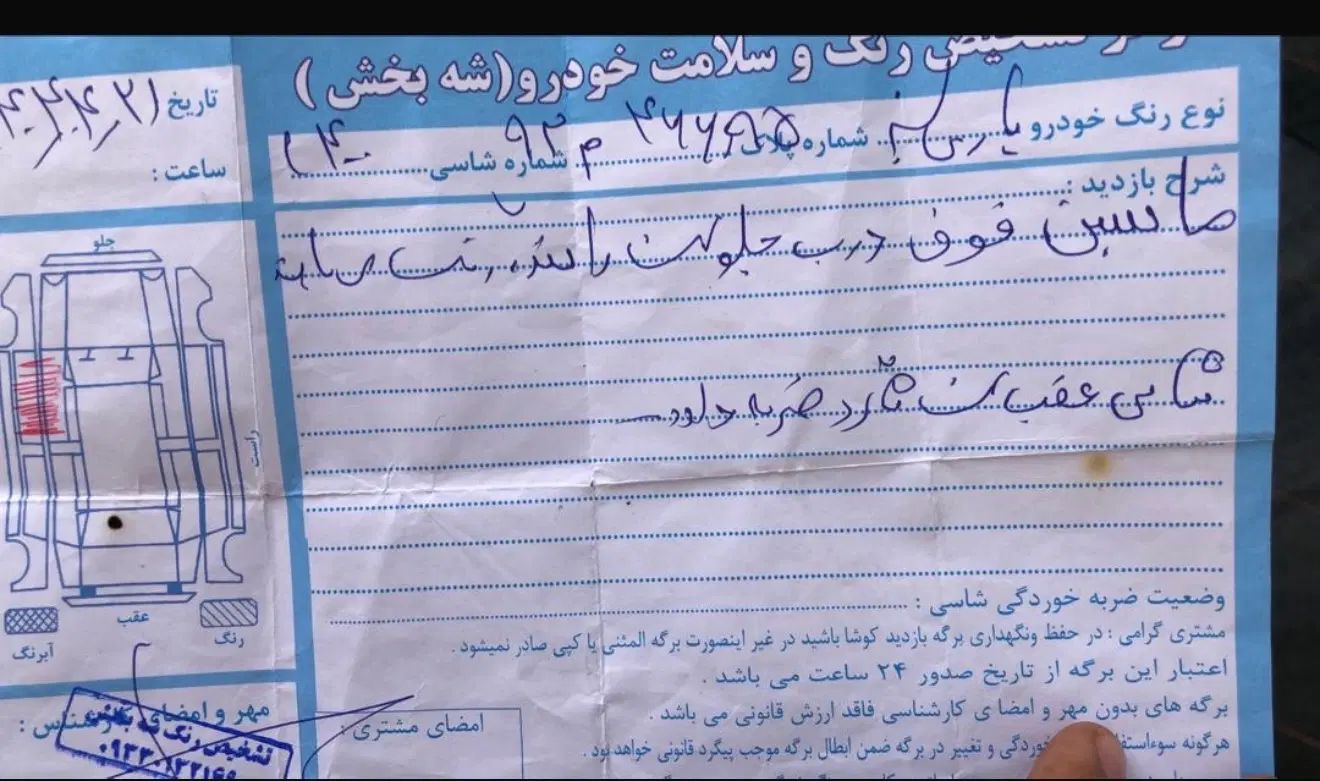 تشخیص رنگ و سلامت خودرو (شه بخش)
تاریخ
ساعت :
نوع رنگ خودرو پارس شماره پلاک شماره شاسی
شرح بازدید :
ماشین فوق درب جلو سمت راننده رنگ میباشد
شاسی عقب سمت شاگرد ضربه دارد
جلو
راست
عقب
رنگ
آبرنگ
وضعیت ضربه خوردگی شاسی :
مشتری گرامی : در حفظ ونگهداری برگه بازدید کوشا باشید در غیر اینصورت برگه المثنی یا کپی صادر نمیشود .
اعتبار این برگه از تاریخ صدور ۲۴ ساعت می باشد .
برگه های بدون مهر و امضا ی کارشناسی فاقد ارزش قانونی می باشد .
هرگونه خوردگی و تغییر در برگه ضمن ابطال برگه موجب پیگرد قانونی خواهد بود .
امضای مشتری :
مهر و امضای کارشناس :
تشخیص رنگ